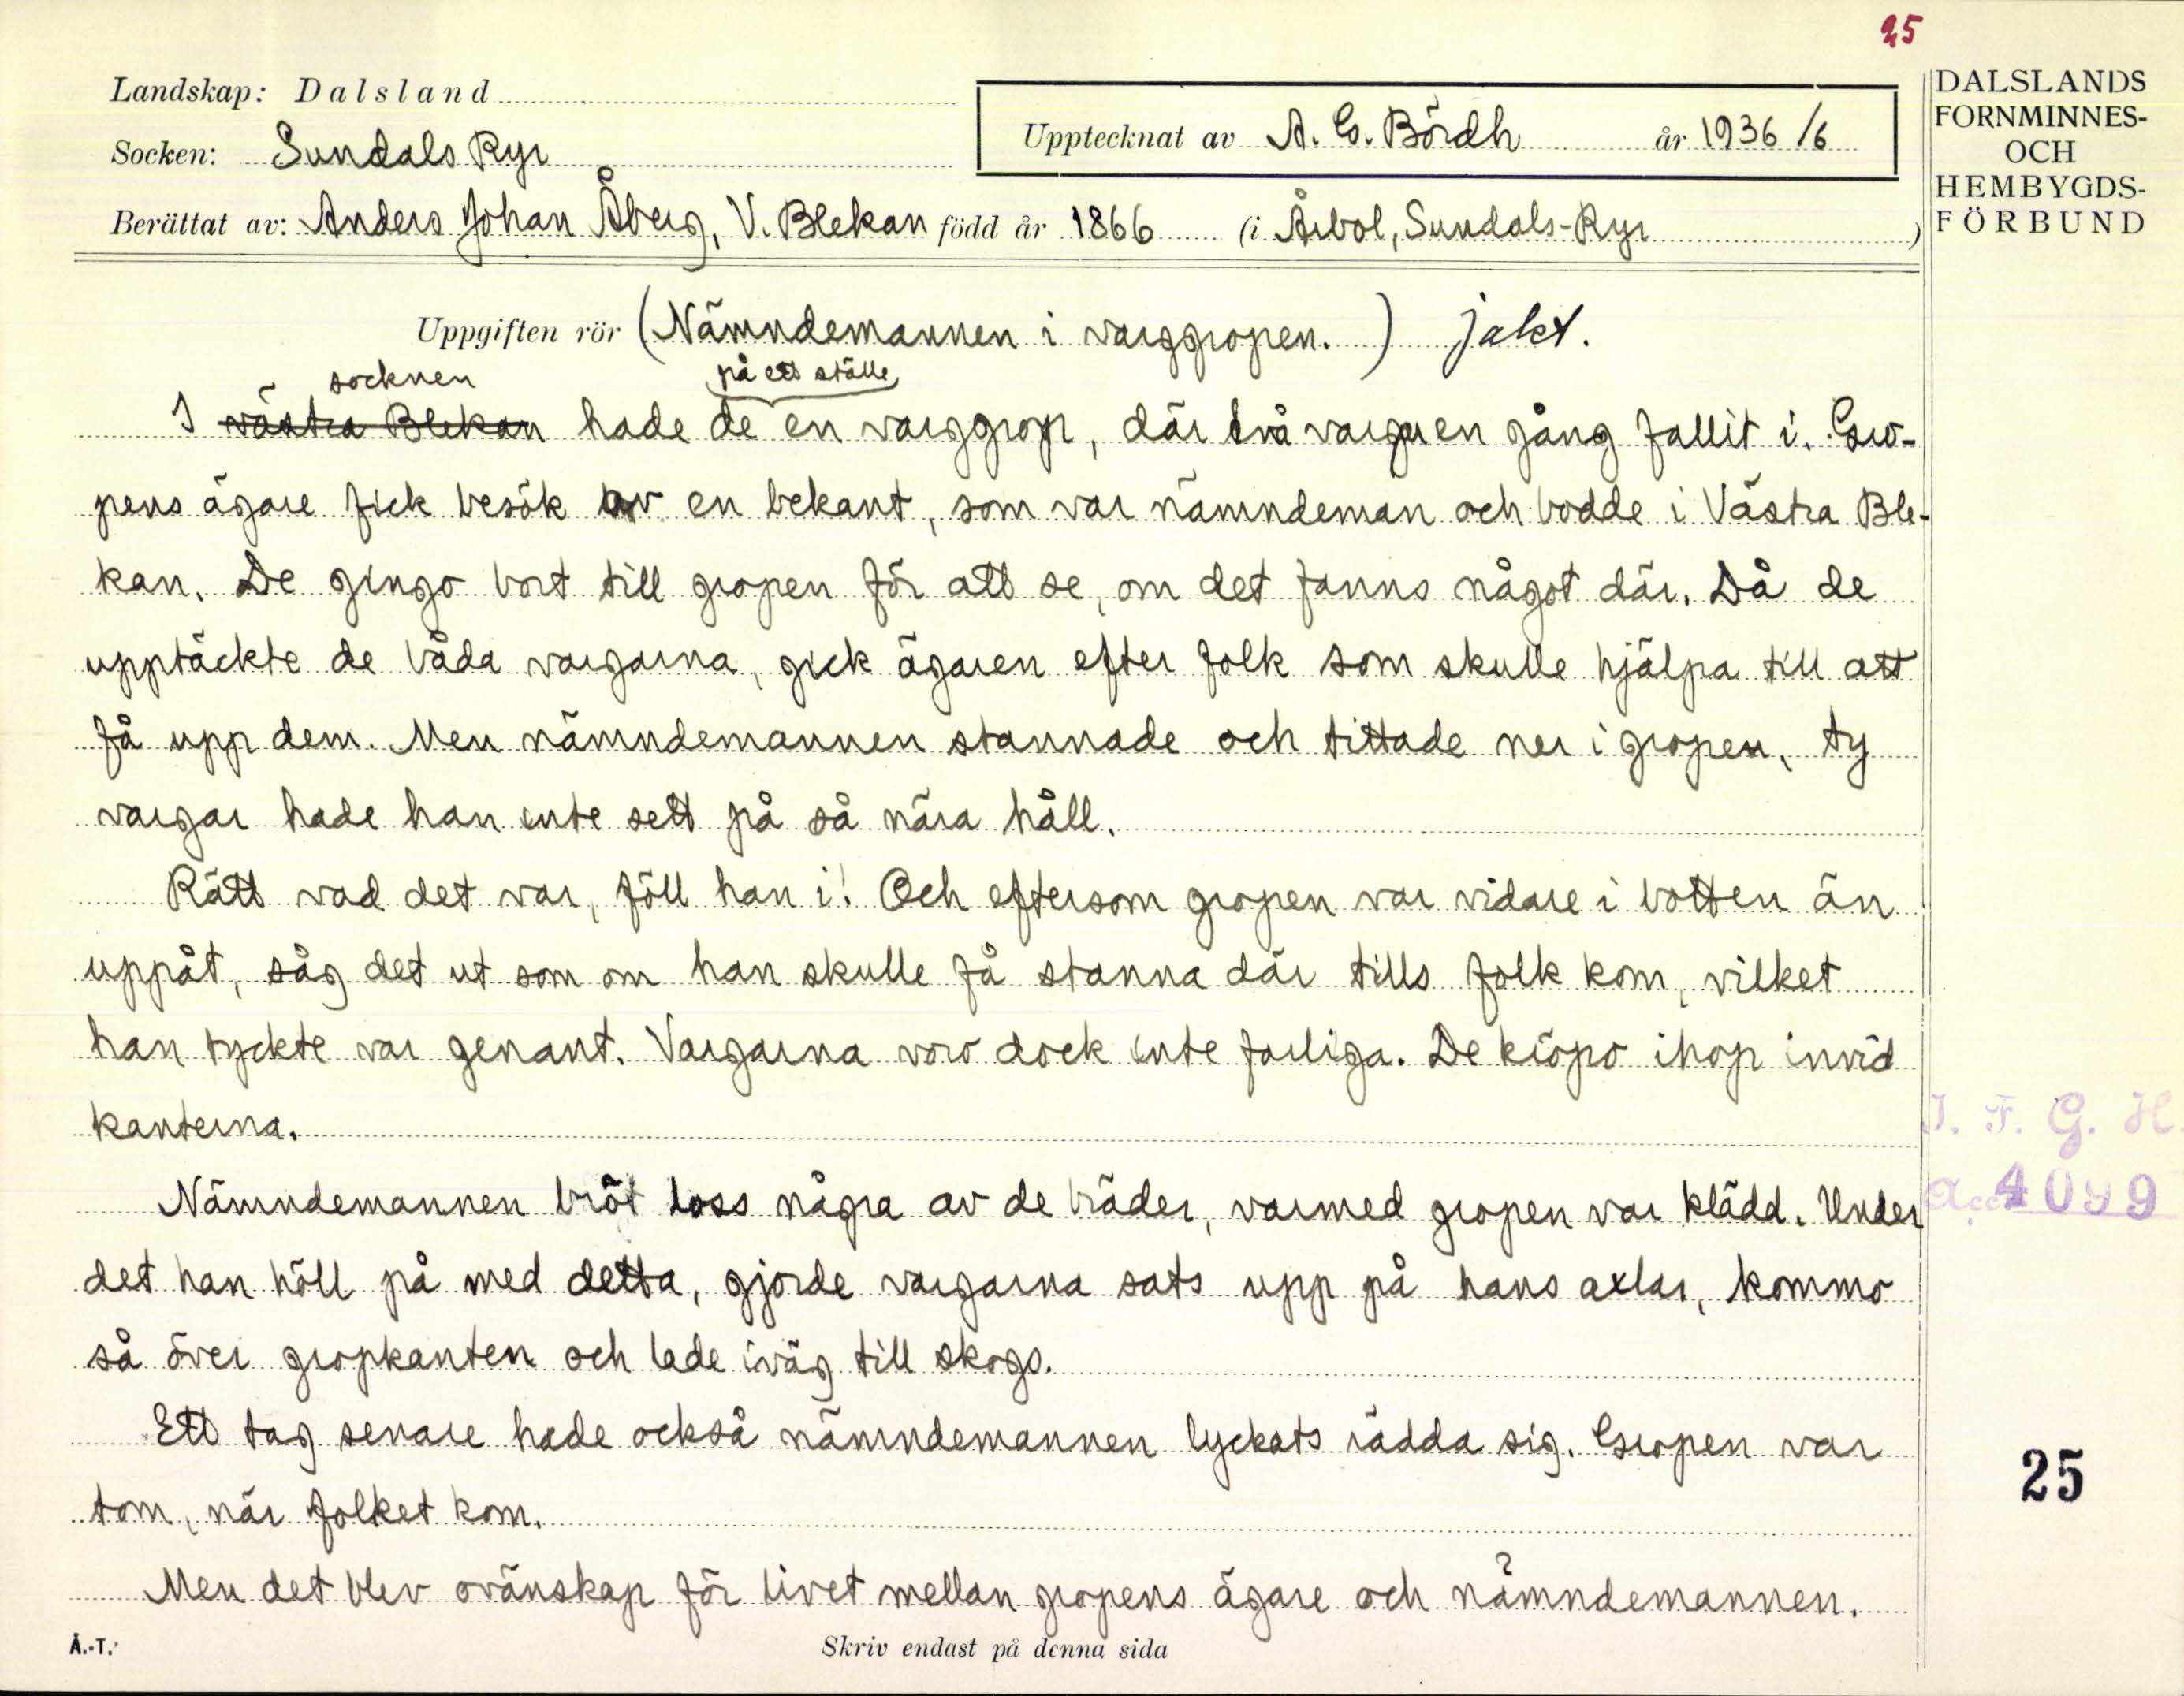 25
Landskap: Dalsland
Socken: Sundals Ryr
Upptecknat av A. G. Bördh år 1936 /6
Berättat av: Anders Johan Åberg, V. Blekan född år 1866 (i Årbol, Sundals-Ryr )
DALSLANDS
FORNMINNES-
OCH
HEMBYGDS-
FÖRBUND
Uppgiften rör (Nämndemannen i varggropen. ) jakt.
socknen på ett ställe
I västra Blekan hade de en varggrop, där två vargar en gång fallit i. Gro-
pens ägare fick besök av en bekant, som var nämndeman och bodde i Västra Ble-
kan. De gingo bort till gropen för att se, om det fanns något där. Då de
upptäckte de båda vargarna, gick ägaren efter folk som skulle hjälpa till att
få upp dem. Men nämndemannen stannade och tittade ner i gropen, ty
vargar hade han inte sett på så nära håll.
Rätt vad det var, föll han i! Och eftersom gropen var vidare i botten än
uppåt, såg det ut som om han skulle få stanna där tills folk kom, vilket
han tyckte var genant. Vargarna voro dock inte farliga. De kröpo ihop invid
kanterna.
Nämndemannen bröt loss några av de bräder, varmed gropen var klädd. Under
det han höll på med detta, gjorde vargarna sats upp på hans axlar, kommo
så över gropkanten och lade iväg till skogs.
Ett tag senare hade också nämndemannen lyckats rädda sig. Gropen var
tom, när folket kom.
Men det blev ovänskap för livet mellan gropens ägare och nämndemannen.
I. F. G. H.
Acc 4099
25
Å.-T.
Skriv endast på denna sida